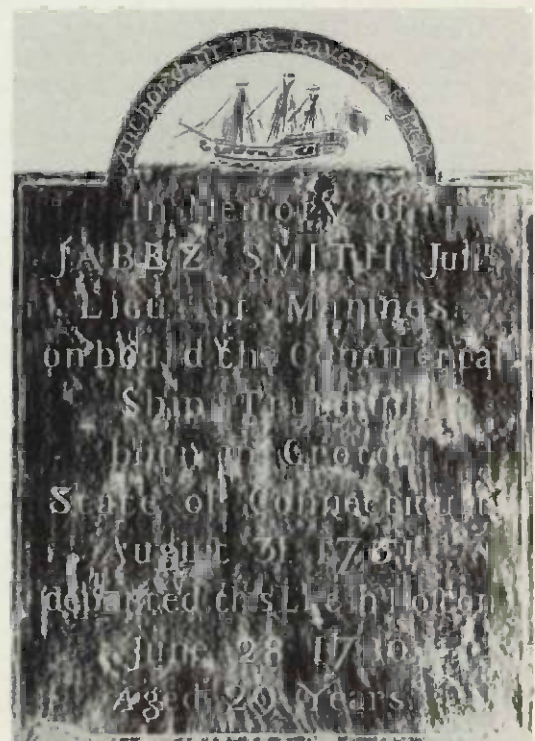 Anchor'd in the haven of Rest
In Memory of
JABEZ SMITH Junr
Lieut of Marines
on board the Continental
Ship Trumbull
born in Groton
State of Connecticut
August 31 1751
departed this Life in Boston
June 28 1780
Aged 20 Years